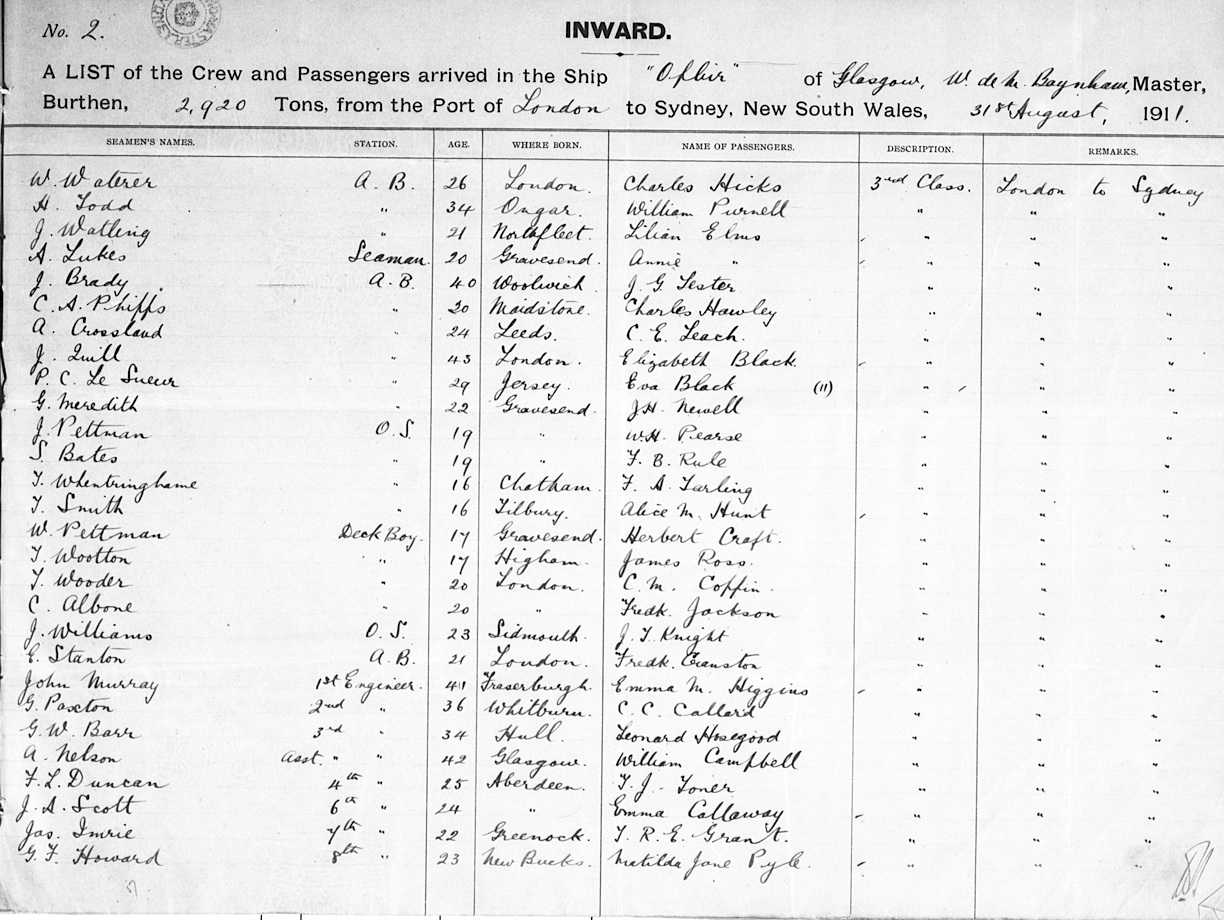 No. 2.
INWARD.
A LIST of the Crew and Passengers arrived in the Ship "Ophir" of Glasgow, W. de M. Baynham, Master,
Burthen, 2,920 Tons, from the Port of London to Sydney, New South Wales, 31st August, 1911.
SEAMEN'S NAMES. STATION. AGE. WHERE BORN. NAME OF PASSENGERS. DESCRIPTION. REMARKS.
W. Waterer A. B. 26 London. Charles Hicks 3rd Class. London to Sydney
H. Todd " 34 Ongar. William Purnell " " "
J. Watling " 21 Northfleet. Lilian Elms " " "
A. Lukes Seaman. 20 Gravesend. Annie " " " "
J. Brady A.B. 40 Woolwich. J. G. Lester " " "
C. A. Phipps " 20 Maidstone. Charles Hawley " " "
A. Crossland " 24 Leeds. C. E. Leach. " " "
J. Quill " 43 London. Elizabeth Black. " " "
P. C. Le Sueur " 29 Jersey. Eva Black (11) " " "
G. Meredith " 22 Gravesend. J.H. Newell " " "
J. Pettman O. S. 19 " W.H. Pearse " " "
S. Bates " 19 " F. B. Rule " " "
T. Whentringhame " 16 Chatham. F. A. Turling " " "
T. Smith " 16 Tilbury. Alice M. Hunt " " "
W. Pettman Deck Boy. 17 Gravesend. Herbert Craft. " " "
T. Wootton " 17 Higham. James Ross. " " "
T. Wooder " 20 London. C. M. Coffin. " " "
C. Albone " 20 " Fredk. Jackson " " "
J. Williams O. S. 23 Sidmouth. J. T. Knight " " "
E. Stanton A.B. 21 London. Fredk. Cranston " " "
John Murray 1st Engineer. 41 Fraserburgh. Emma M. Higgins " " "
G. Paxton 2nd " 36 Whitburn. C. C. Callard " " "
G. W. Barr 3rd " 34 Hull. Leonard Hosegood " " "
A. Nelson Asst. " " 42 Glasgow. William Campbell " " "
F. L. Duncan 4th " 25 Aberdeen. T. J. Toner " " "
J. A. Scott 6th " 24 " Emma Callaway " " "
Jas. Imrie 7th " 22 Greenock. T. R. E. Grant. " " "
G. F. Howard 8th " 23 New Bucks. Matilda Jane Pyle. " " "